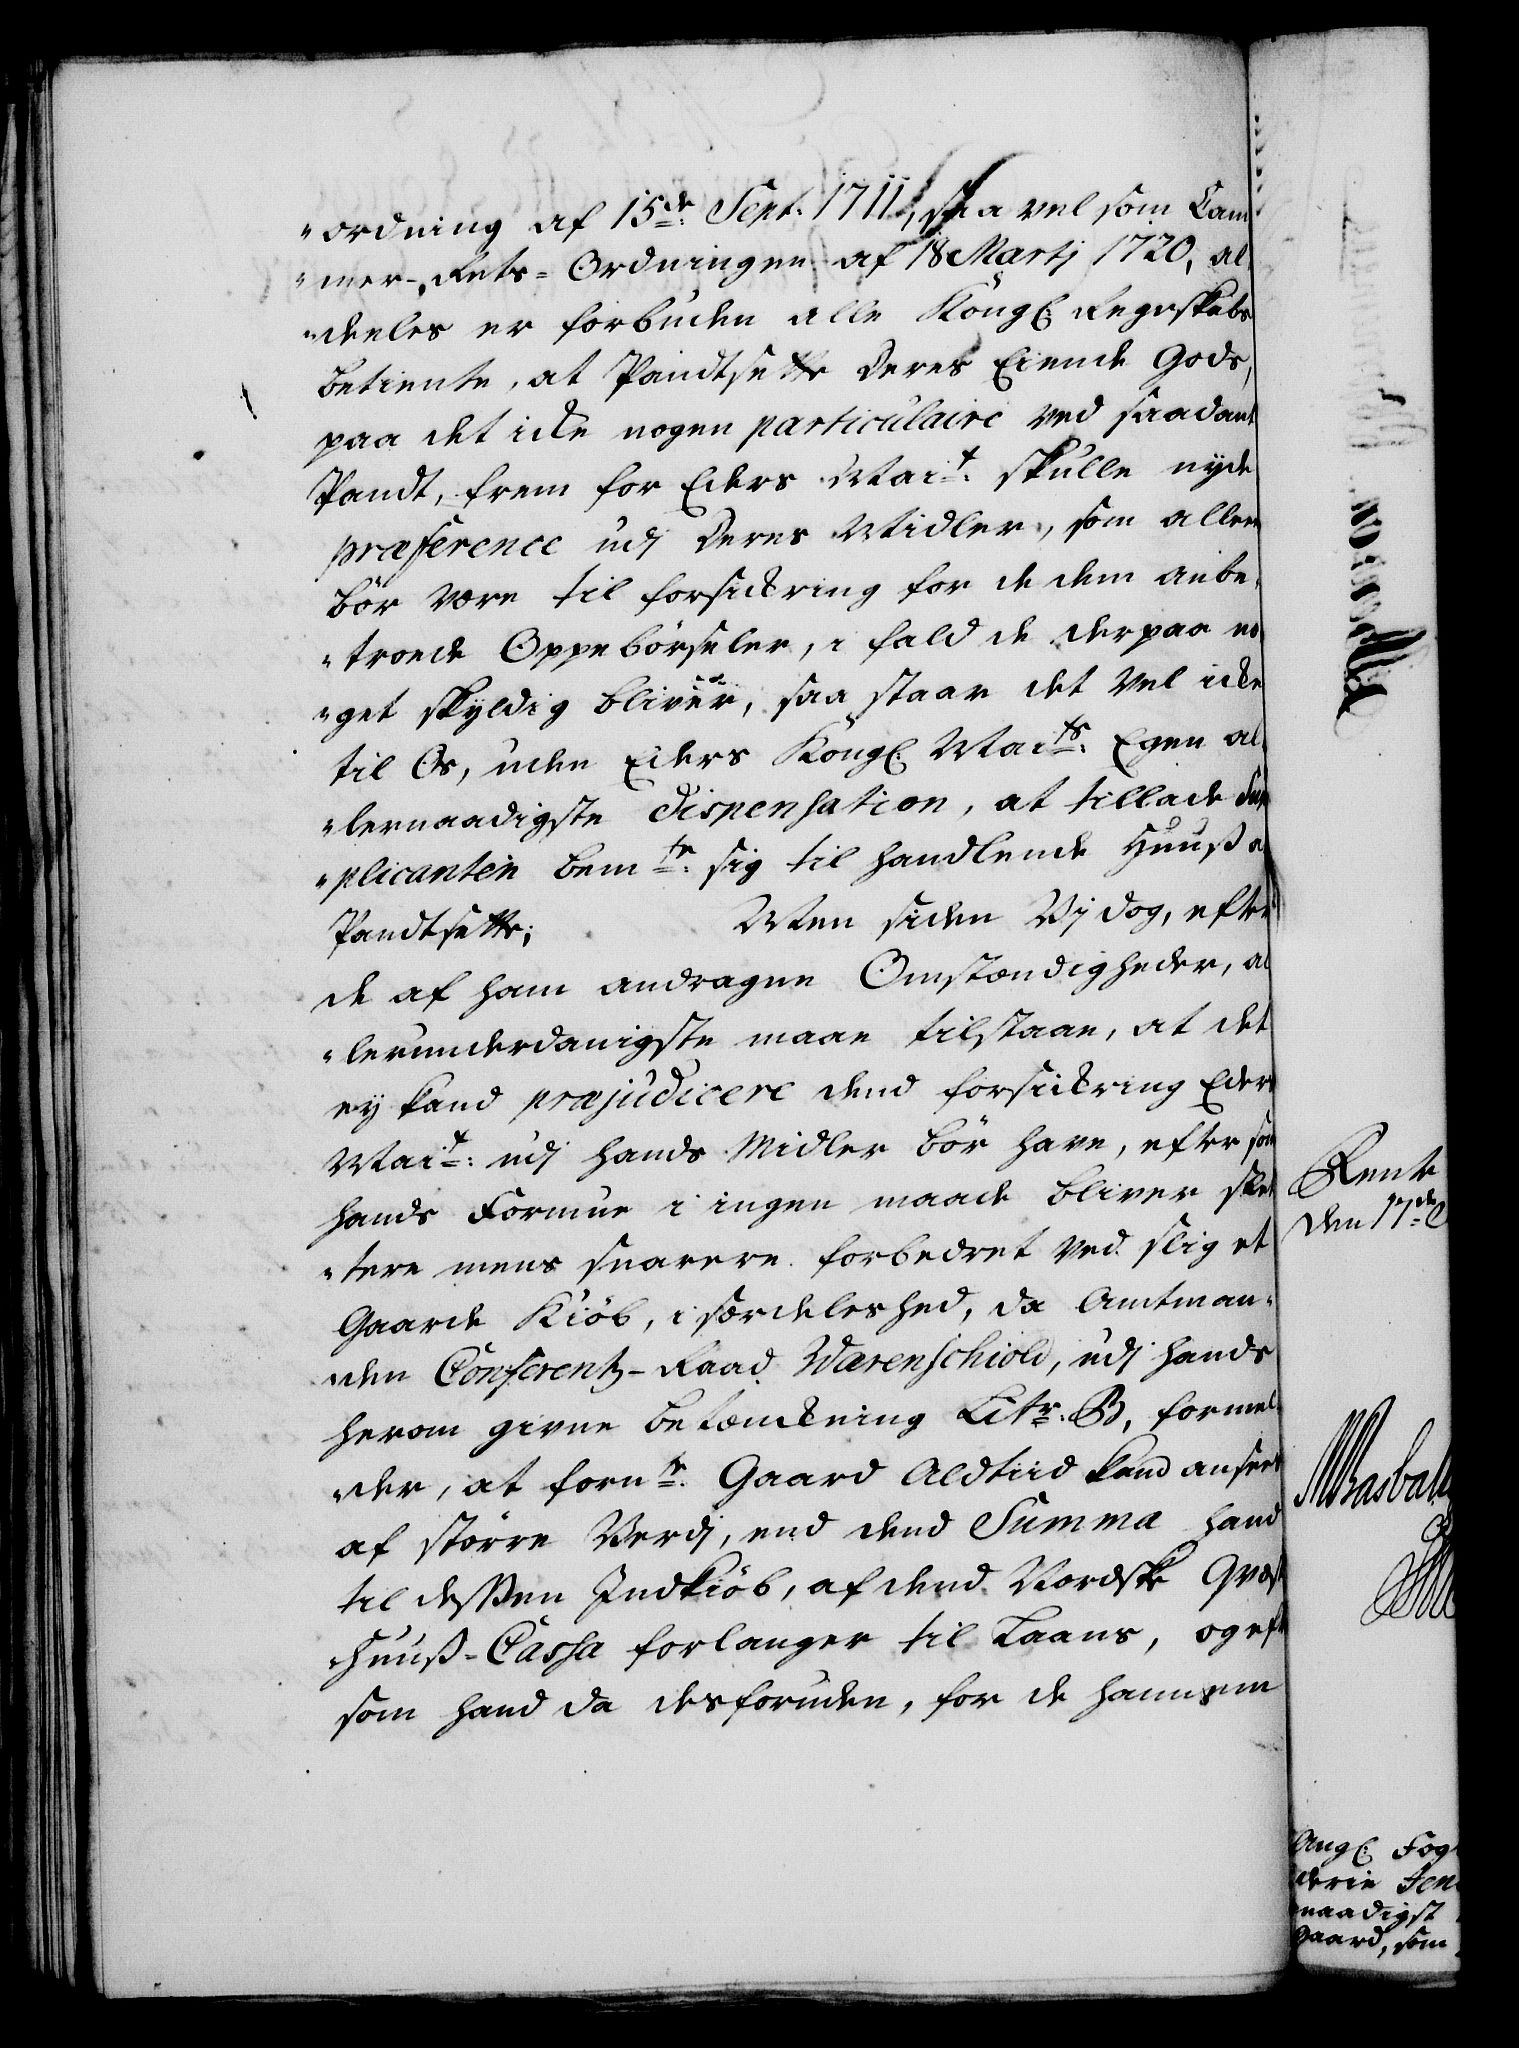 "ordning af 15de Sept: 1711, saa vel som Cam¬
"mer-Rets-Ordningen af 18 Martj 1720, al¬
"deeles er forbuden alle Kongl: Regnskabs
betiente, at Pandtsette deres Eiende Gods,
paa det icke nogen particulaire ved saadant
Pandt, frem for Eders Mait: skulle nyde
præference udj deres Midler, som alleen
bör være til forsickring for de dem anbe¬
"troede Oppebörseler, i fald de derpaa no¬
"get skyldig bliver, saa staar det vel icke
til Os, uden Eders Kongl: Maits: Egen al¬
"lernaadigste Dispensation, at tillade Sup
"plicanten bemte: sig til handlende Huuß a
Pandtsette; Men siden Vj dog, efter
de af ham andragne Omstændigheder, al
"lerunderdanigste maae tilstaae, at det
ey kand præjudicere dend forsickring Eders
Mait: udj hands Midler bör have, efter som
hands Formue i ingen maade bliver slet
"tere mens snarere forbedret ved slig et
Gaarde Kiöb, i særdeleshed, da Amtman¬
"den Conferentz-Raad Wærenschiold, udj hands
herom givne betænckning Litr: B, formel¬
"der, at fornte: Gaard Aldtiid kand ansees
af större Verdj, end dend Summa hand
til deßen Indkiöb, af dend Nordske Qvæst
"huuß-Cassa forlanger til Laans, og eft
som hand da desforuden, for de ham sem
Rente
den 17de
Ang: Fog
derie Jen
naadigst
Gaard, som